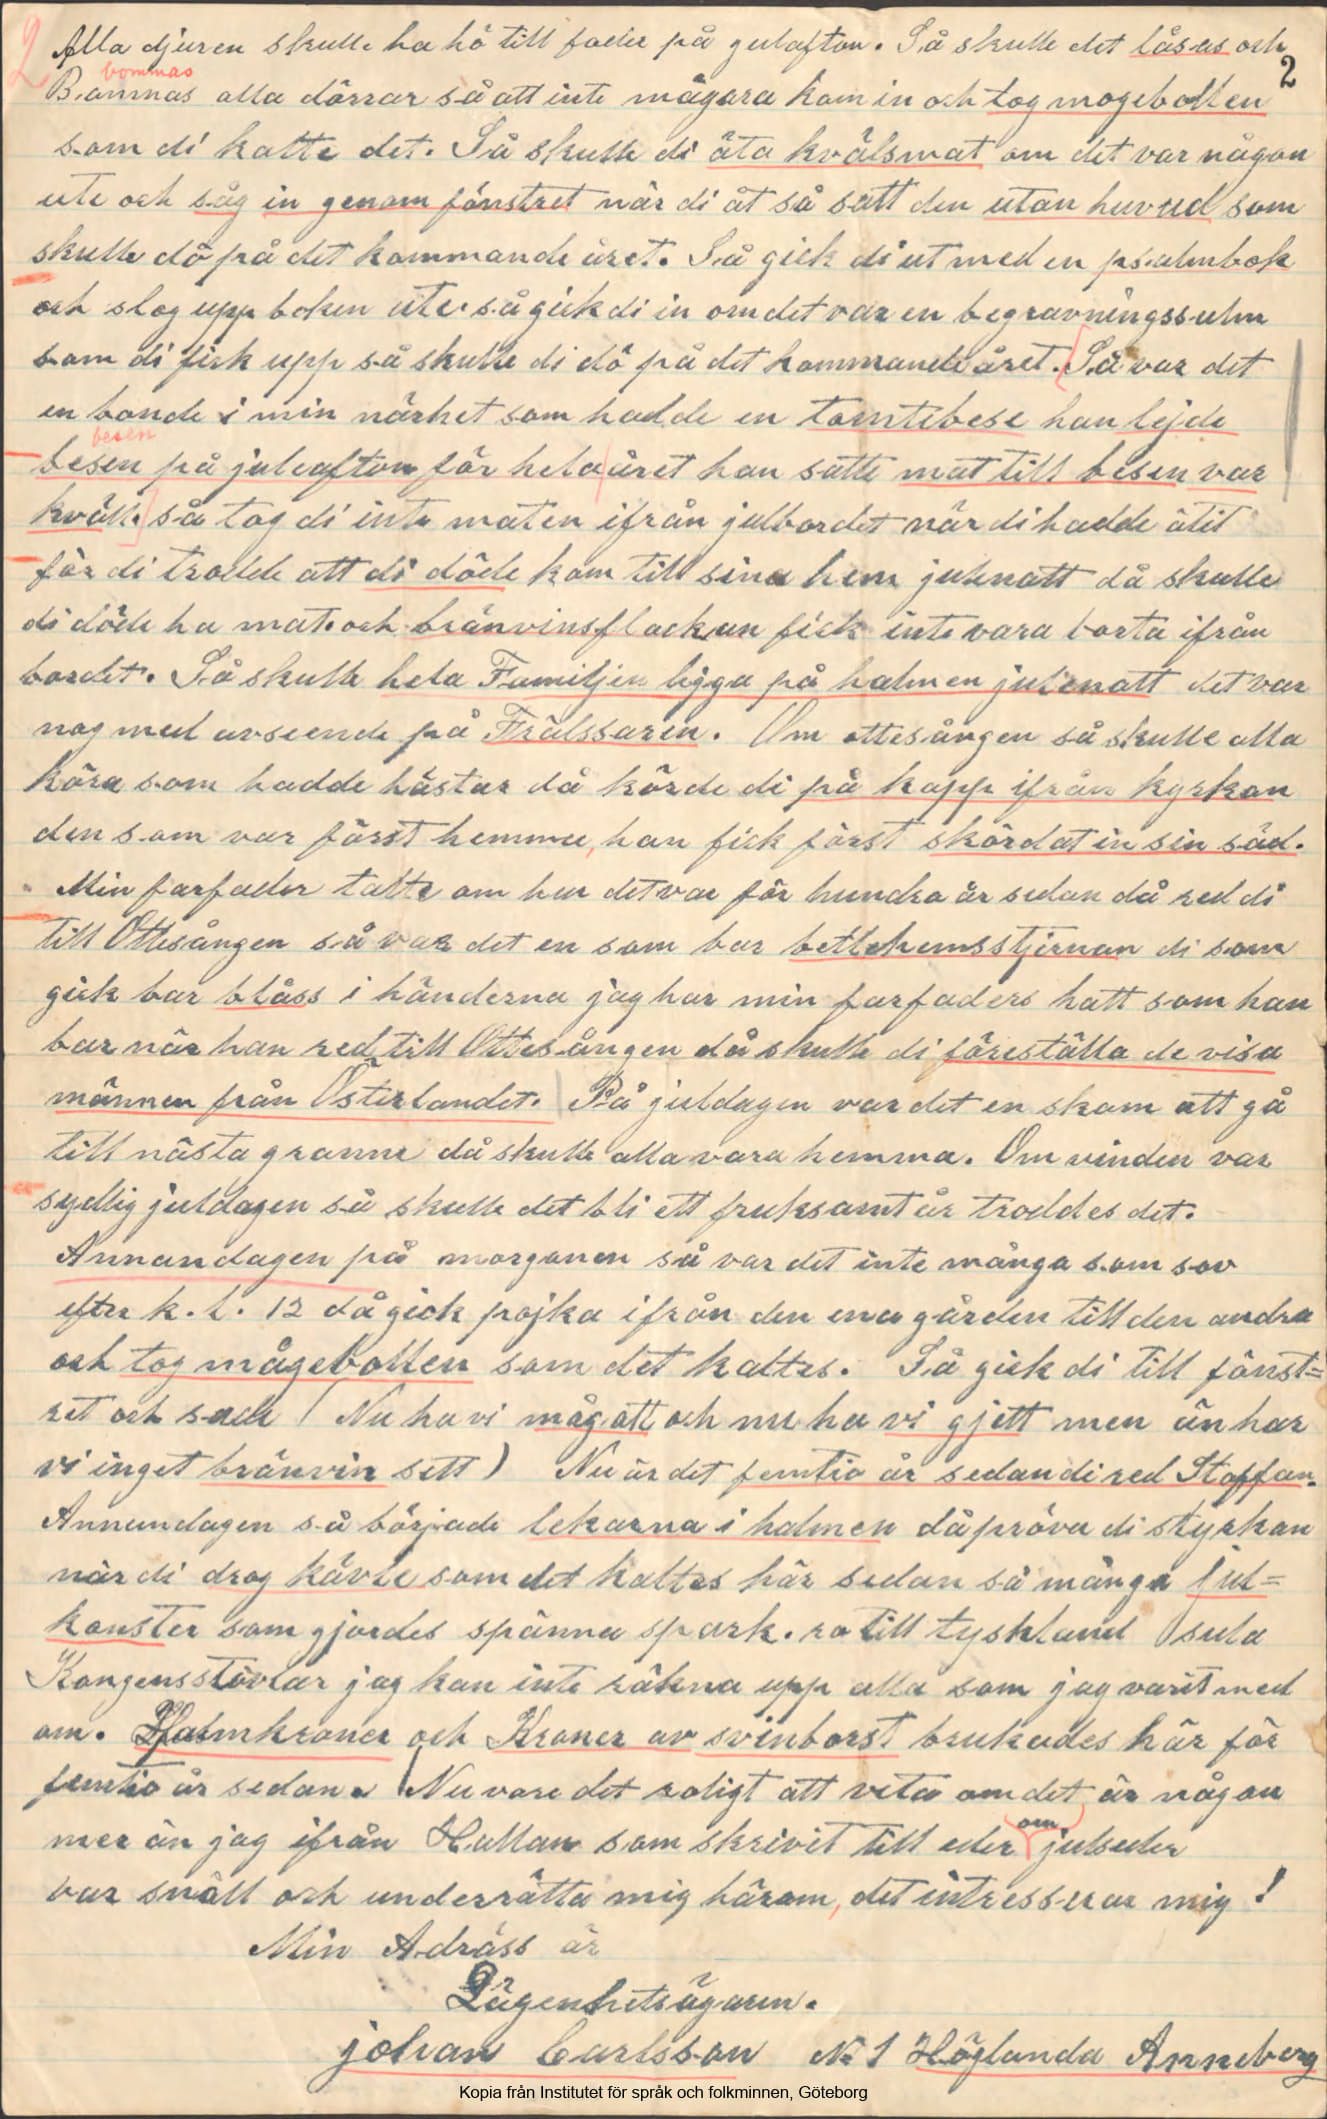 2
Alla djuren skulle ha hö till foder på julafton. Så skulle det låsas och
2
bommas
Bommas alla dörrar så att inte mågara kom in och tog mogebollen
som di kalte det. Så skulle di äta kvälsmat om det var någon
ute och såg in genom fönstret när di åt så satt den utan huvud som
skulle dö på det kommande året. Så gick di ut med en psalmbok
och slog upp boken ute så gick di in om det var en begravningssalm
som di fick upp så skulle di dö på det kommande året. Så var det
en bonde i min närhet som hadde en tomtebese han lejde
besen
besen på juleafton för hela året han satte mat till besen var
kväll. så tog di inte maten ifrån julbordet när di hadde ätit
för di trodde att di döde kom till sina hem julenatt då skulle
di döde ha mat. och bränvinsflackan fick inte vara borta ifrån
bordet. Så skulle hela Familjen ligga på halmen julenatt det var
nog med avseende på Frälssaren. Om ottesången så skulle alla
köra som hadde hästar då körde di på kapp ifrån kyrkan
den som var först hemma, han fick först skördat in sin säd.
Min farfader talte om hur det var för hundra år sedan då red di
till Ottesången så var det en som bar betlehemsstjernan di som
gick bar blåss i händerna jag har min farfaders hatt som han
bar när han red till Ottesången då skulle di föreställa de visa
männen från Österlandet. På juldagen var det en skam att gå
till nästa granne då skulle alla vara hemma. Om vinden var
sydlig juldagen så skulle det bli ett fruksamt år troddes det.
Annandagen på morgonen så var det inte många som sov
efter k.l. 12 då gick pojka ifrån den ena gården till den andra
och tog mågebollen som det kaltes. Så gick di till fönst=
ret och sade ( Nu ha vi mågatt och nu ha vi gjett men än har
vi inget bränvin sett ) Nu är det femtio år sedan di red Staffan.
Annandagen så började lekarna i halmen då pröva di styrkan
när di drog kävle som det kaltes här sedan så många jul=
konster som gjordes spänna spark. ro till tyskland sula
Kongensstövlar jag kan inte räkna upp alla som jag varit med
om. Halmkroner och Kroner av svinborst brukades här för
femtio år sedan. Nu vore det roligt att veta om det är någon
om
mer än jag ifrån Hallan som skrivit till eder julseder
var snäll och underrätta mig härom, det intresserar mig !
Min Adräss är
Lägenhetsägaren.
johan Carlsson No 1 Höglanda Anneberg
Kopia från Institutet för språk och folkminnen, Göteborg